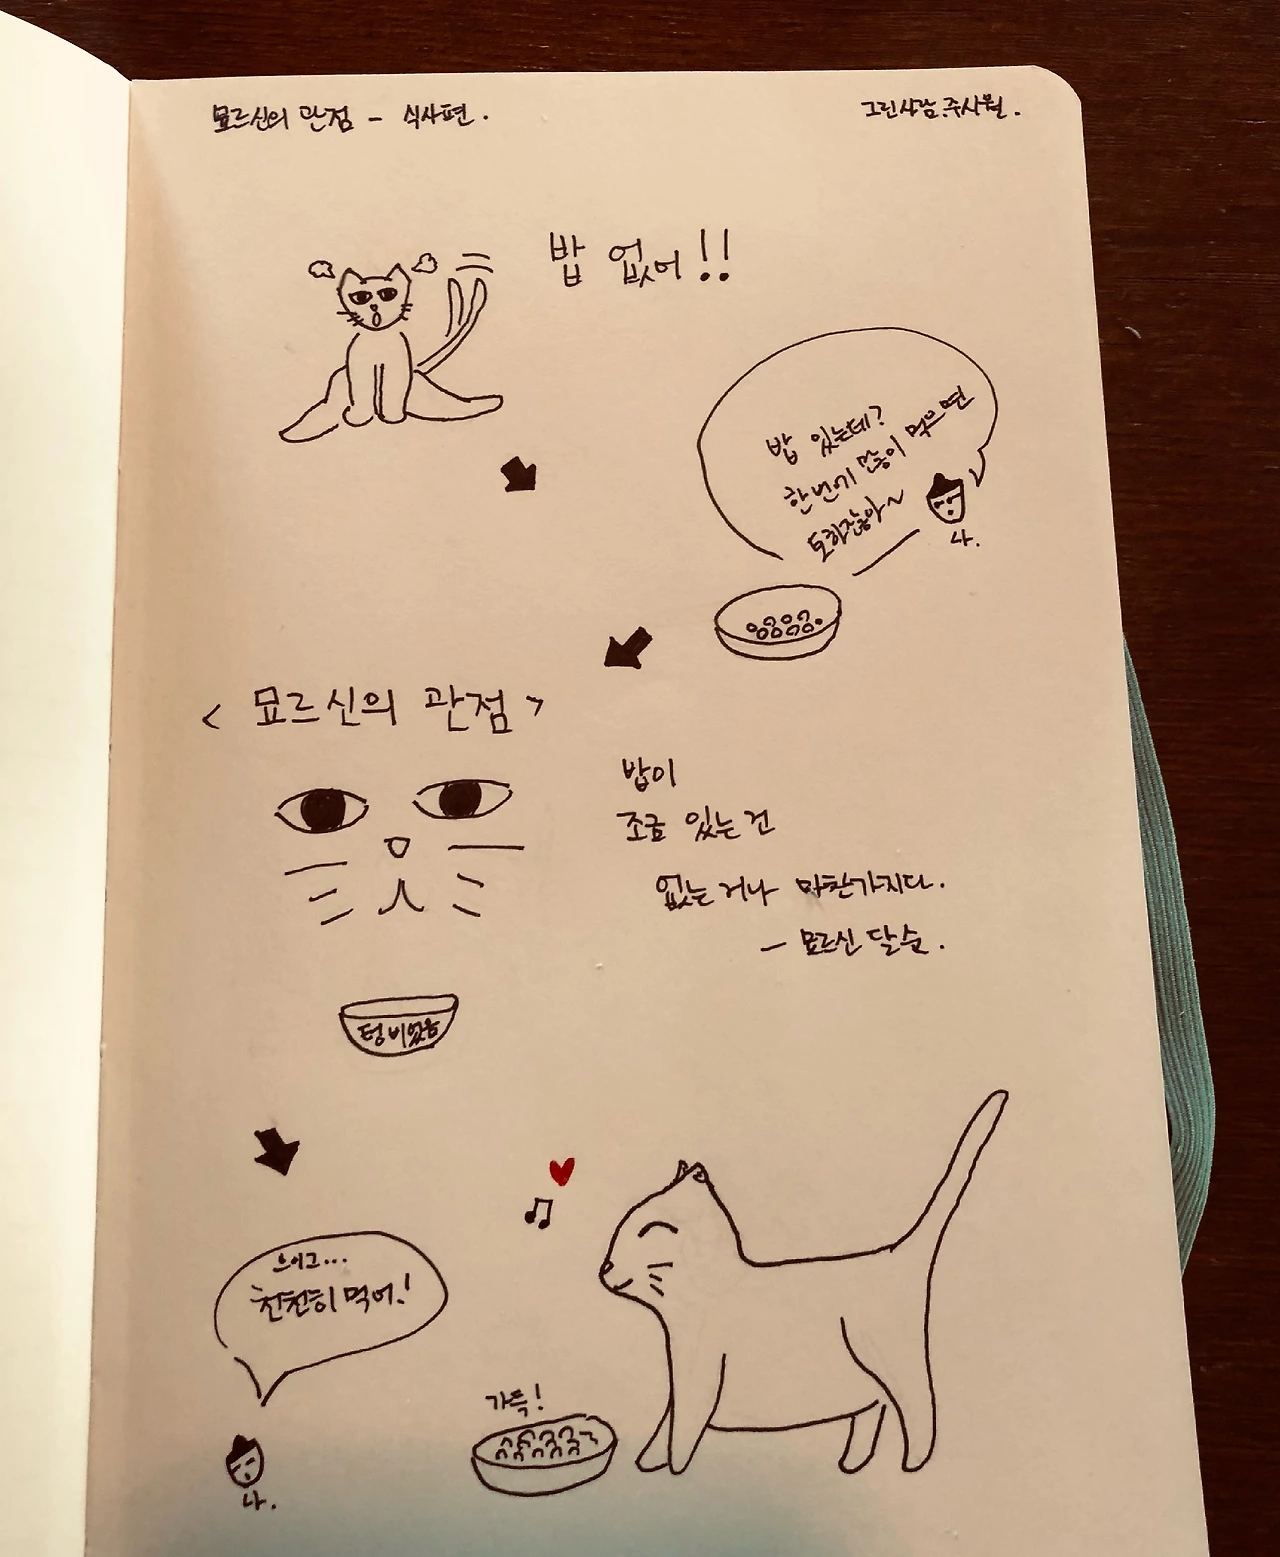 묘르신의 관점 - 식사편.
그린사람.주사월.
밥 없어!!
밥 있는데?
한번에 많이 먹으면
토하잖아~
나.
< 묘르신의 관점 >
밥이
조금 있는건
없는거나 마찬가지다.
- 묘르신 달순.
텅 비었음
으이그...
천천히 먹어!
나.
가득!